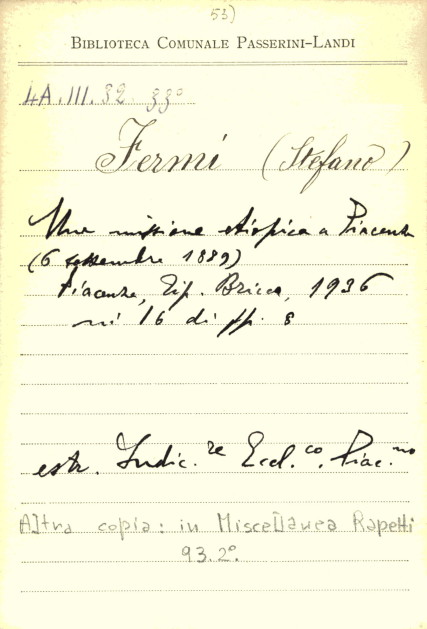 53)
BIBLIOTECA COMUNALE PASSERINI-LANDI
4A.III.32 33°
Fermi (Stefano)
Una missione etiopica a Piacenza
(6 settembre 1889)
Piacenza, Tip. Bricca, 1936
in 16 di pp. 8
estr. Indic.re Eccl.co Piac.no
Altra copia: in Miscellanea Rapetti
93.2°.